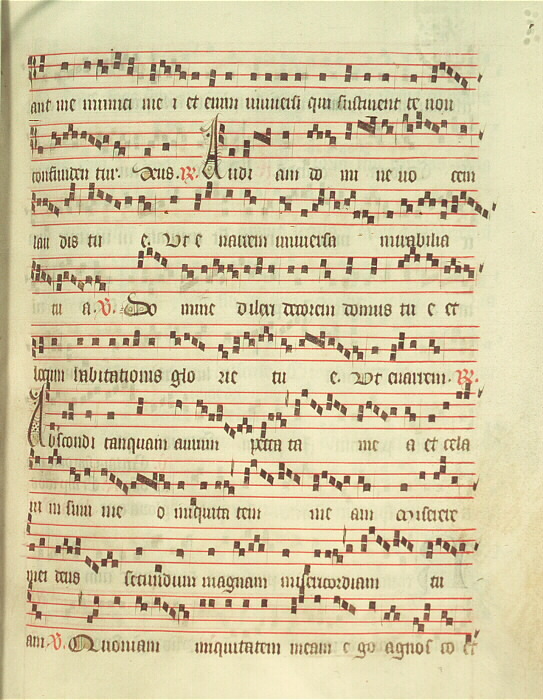 ant me inimici me i et enim universi qui sustinent te non
confunden tur. Deus. R. Audi am do mi ne vo cem
lau dis tu e. Ut e narrem universa mirabilia
tu a. V. Do mine dilexi decorem domus tu e et
locum habitationis glo rie tu e. Ut enarrem. R.
Abscondi tanquam aurum pecca ta me a et cela
vi in sinu me o iniquita tem me am Miserere
mei deus secundum magnam misericordiam tu
am V. Quoniam iniquitatem meam e go agnos co et